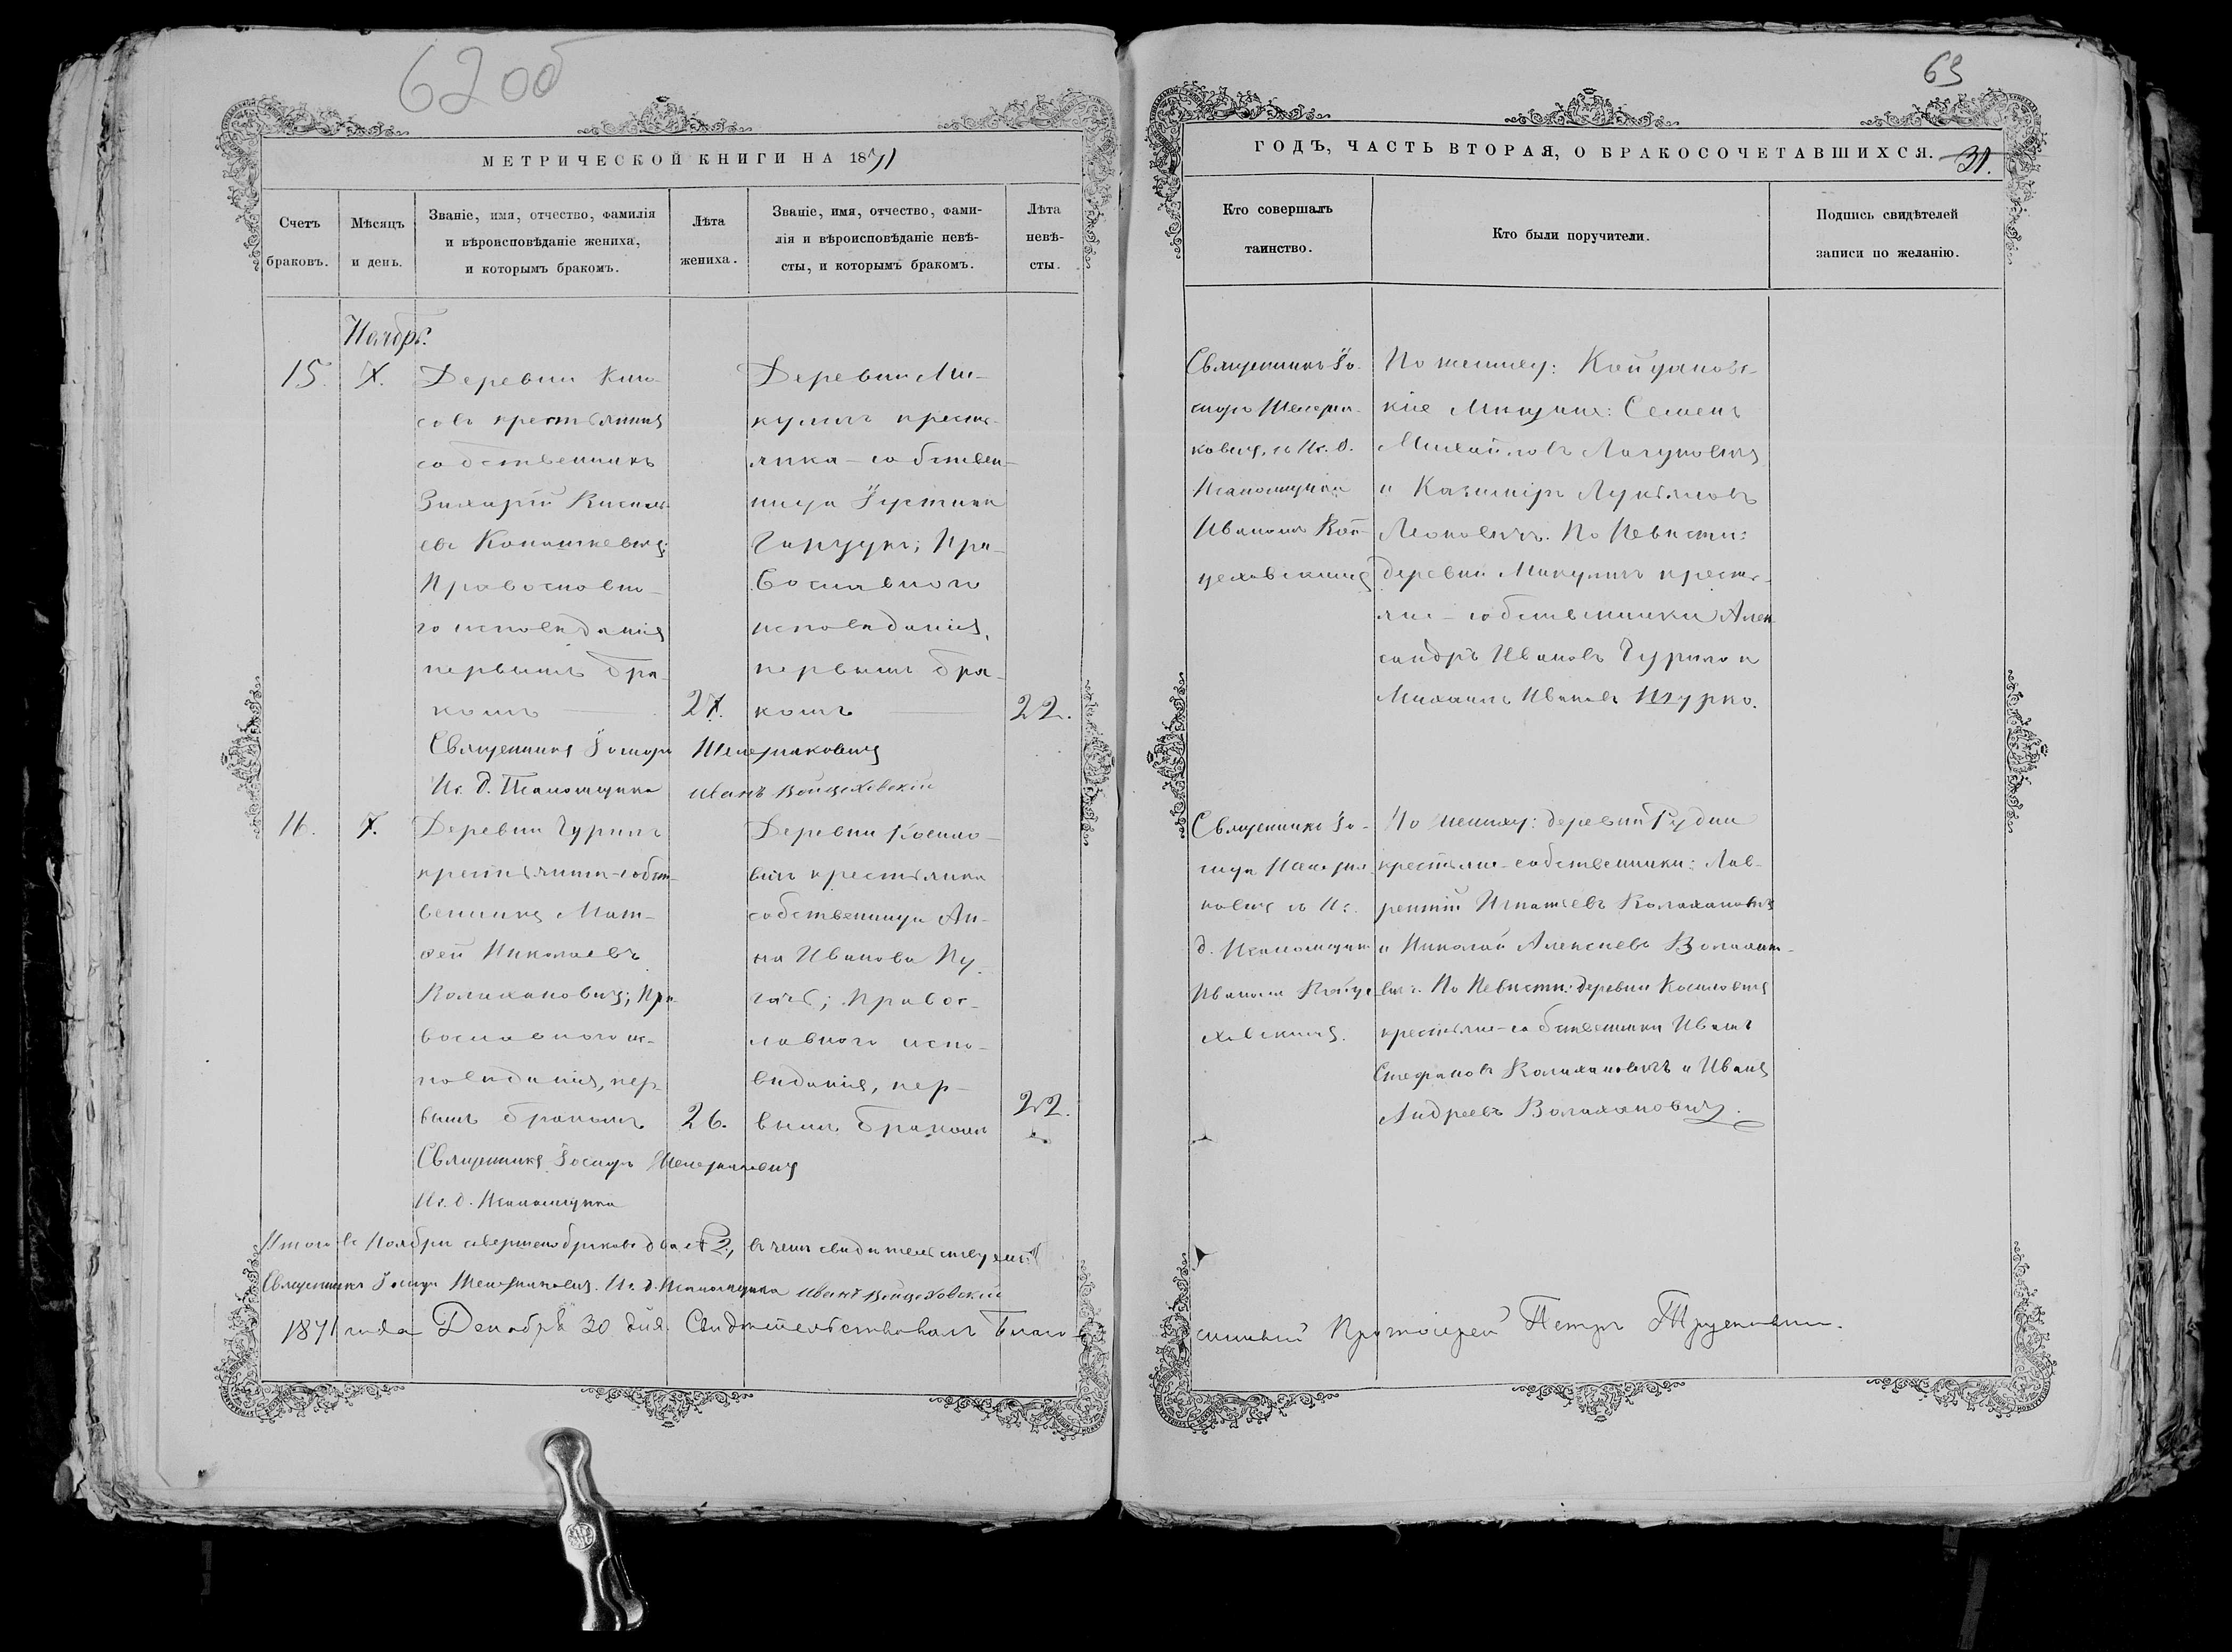 62 об
МЕТРИЧЕСКОЙ КНИГИ НА 1871
Счетъ
браковъ.
Мѣсяцъ
и день.
Званіе, имя, отчество, фамилія
и вѣроисповѣданіе жениха,
и которымъ бракомъ.
Лѣта
жениха.
Званіе, имя, отчество, фами-
лія и вѣроисповѣданіе невѣ-
сты, и которымъ бракомъ.
Лѣта
невѣ-
сты.
Ноябрь.
15.
7.
Деревни
крестьянинъ
собственникъ
Захарій Василь-
евъ
Православна-
го исповѣданія
первымъ бра-
комъ
27.
Деревни Ми-
куличъ кресть-
янка-собствен-
ница Іустина
Пра-
вославного
исповѣданія,
первымъ бра-
комъ
22.
Священникъ Іосифъ
Ис. д. Псаломщика Иванъ Войцеховскій
16.
7.
Деревни Чурилъ
крестьянинъ-собст-
венникъ Мат-
фей Николаевъ
Волахановичъ; Пра-
вославного ис-
повѣданія, пер-
вымъ бракомъ
26.
Деревни Косило-
вичъ крестьянка
собственница Ан-
на Иванова Пу-
гачъ; Правос-
лавного испо-
вѣданія, пер-
вымъ бракомъ
22.
Священникъ Іосифъ
Ис. д. Псаломщика
Итого въ Ноябрѣ совершено браковъ два № 2, въ чемъ свидѣтельствуемъ:
Священникъ Іосифъ Ис. д. Псаломщика Иванъ Войцеховскій
1871 года Декабря 30 дня. Свидѣтельствовалъ Благо-
63
ГОДЪ, ЧАСТЬ ВТОРАЯ, О БРАКОСОЧЕТАВШИХСЯ.
31.
Кто совершалъ
таинство.
Кто были поручители.
Подпись свидѣтелей
записи по желанію.
Священникъ Іо-
сифъ
съ Ис. д.
Псаломщика
Иваномъ Вой-
цеховскимъ
По жениху: Койдановс-
кіе Мѣщане: Семенъ
Михайловъ
и Казиміръ Лукьяновъ
Леоновичъ. По Невѣстѣ:
деревни Микуличъ кресть-
яне-собственники Алек-
сандръ Ивановъ Чурило и
Михаилъ Ивановъ Шурко.
Священникъ Іо-
сифъ
съ Ис.
д. Псаломщика
Иваномъ Войце-
ховскимъ.
По жениху: деревни Рудни
крестьяне-собственники: Лав-
рентій Игнатьевъ Волахановичъ
и Николай Алексѣевъ
По Невѣстѣ: деревни Косиловичъ
крестьяне-собственники Иванъ
Стефановъ Волахановичъ и Иванъ
Андреевъ Волахановичъ.
чинный Протоіерей Петръ